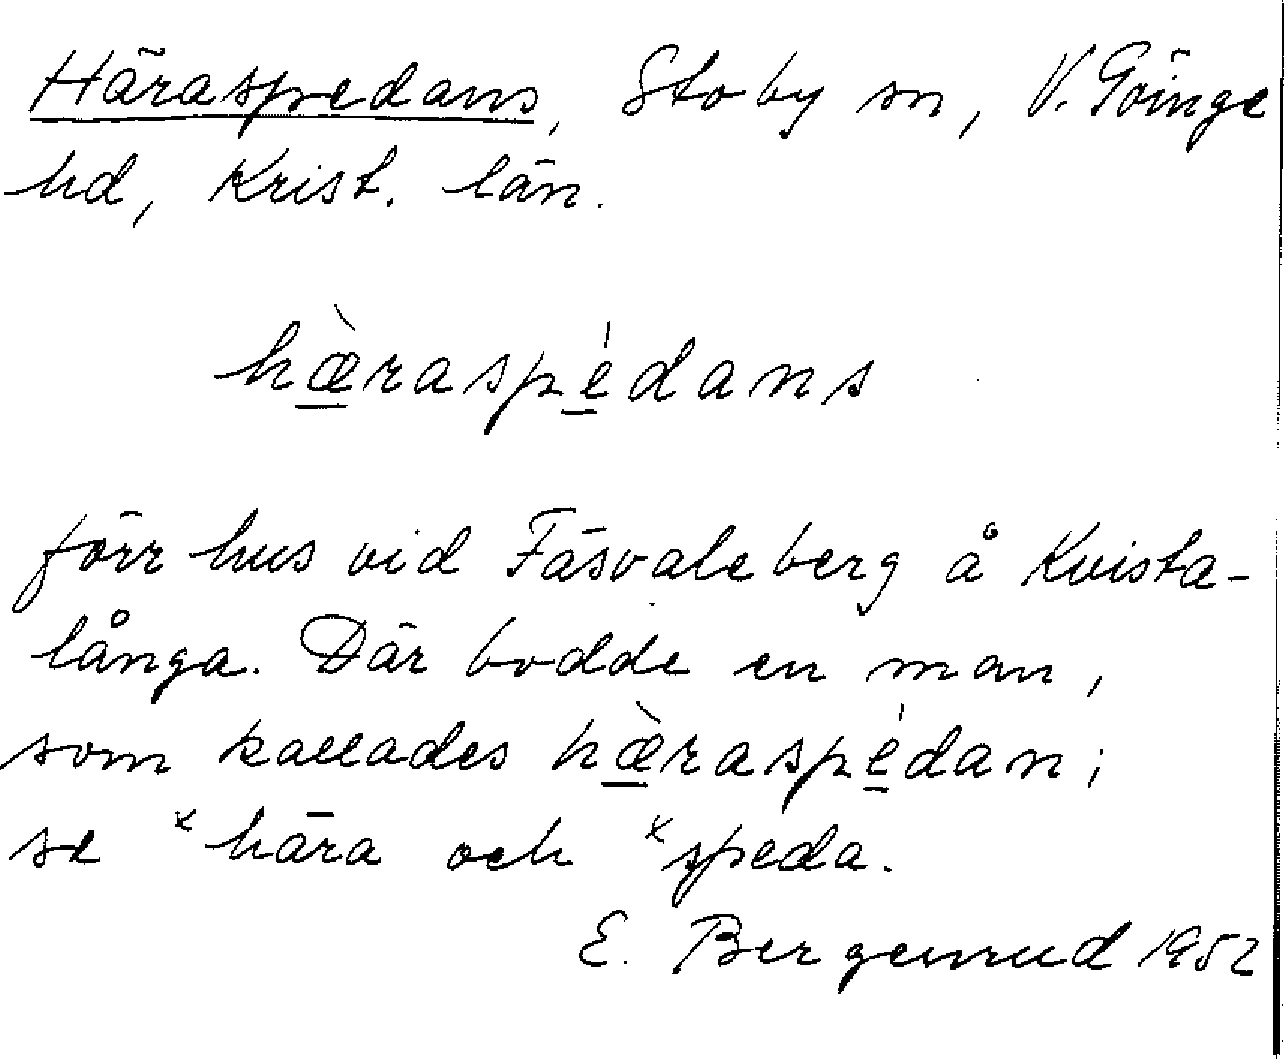 Häraspedans, Stoby sn, V. Göinge
hd, Krist. län.
hæ̀raspédans
förr hus vid Fäsvaleberg å Kvista-
långa. Där bodde en man,
som kallades hæ̀raspédan;
se ˣhära och ˣspeda.
E. Bergenrud 1952